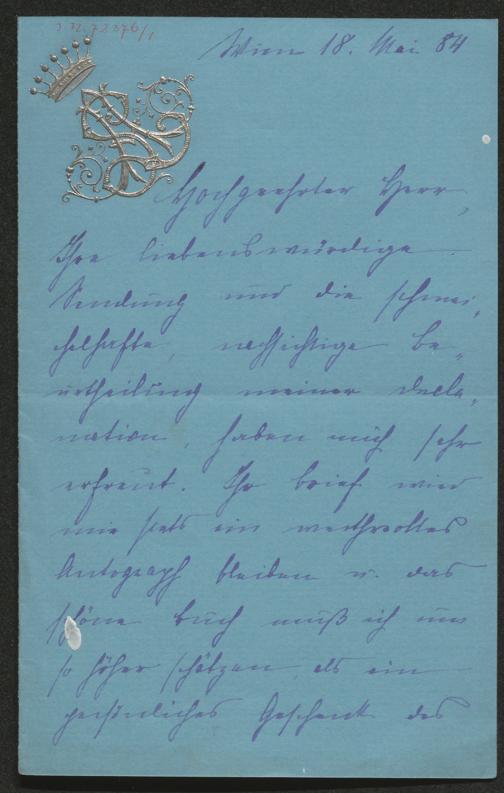 J.N. 73376/1
Wien 18. Mai 84
Hochgeehrter Herr,
Ihre liebenswürdige
Sendung und die schmei-
chelhafte, nachsichtige Be-
urtheilung meiner Decla-
mation, haben mich sehr
erfreut. Ihr Brief wird
mir stets ein werthvolles
Autograph bleiben u. das
schöne Buch muß ich um
so höher schätzen, als ein
persönliches Geschenk des